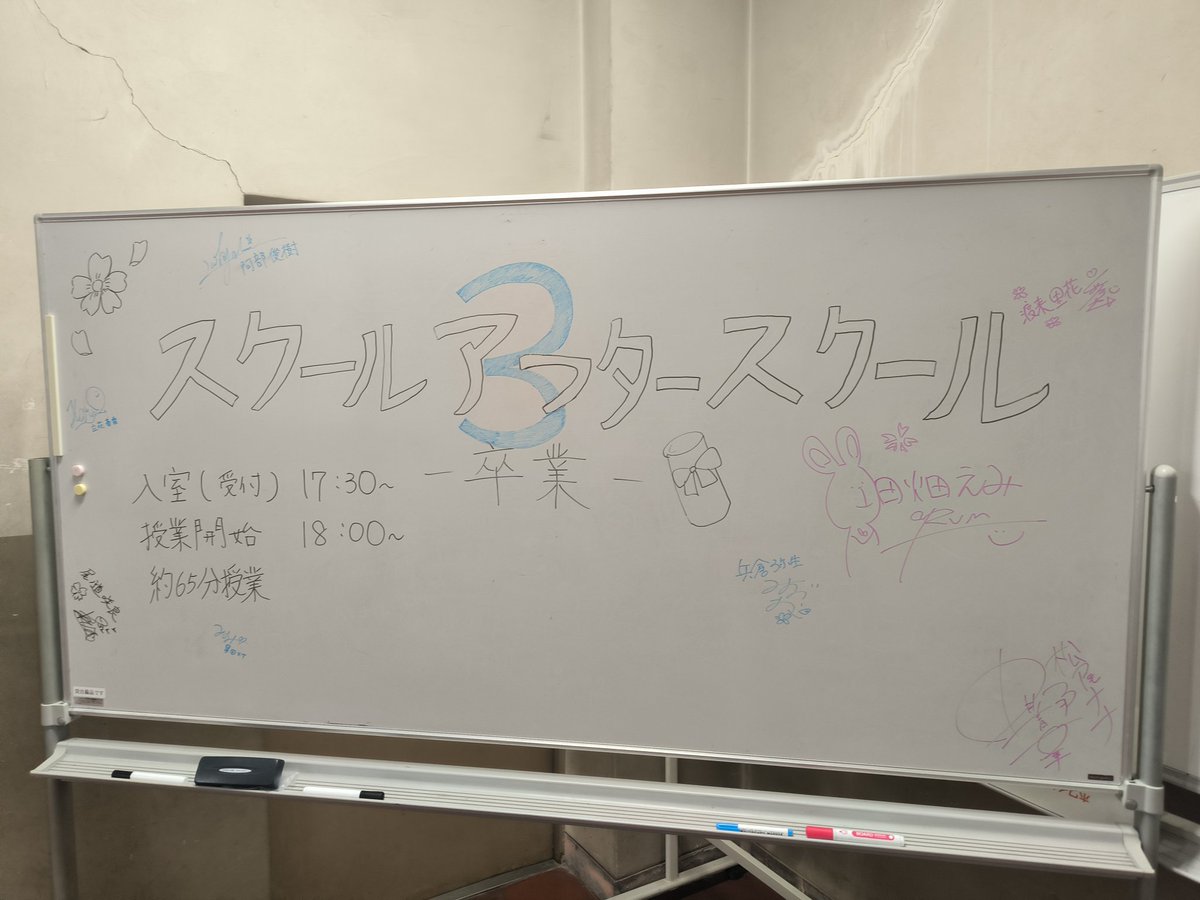 阿部俊樹
渡来里花
スクールアフタースクール
3
立花香音
－卒業－
入室(受付) 17:30〜
授業開始 18:00〜
約65分授業
田畑えみ
矢倉弥生
松尾ナナ
BOARD